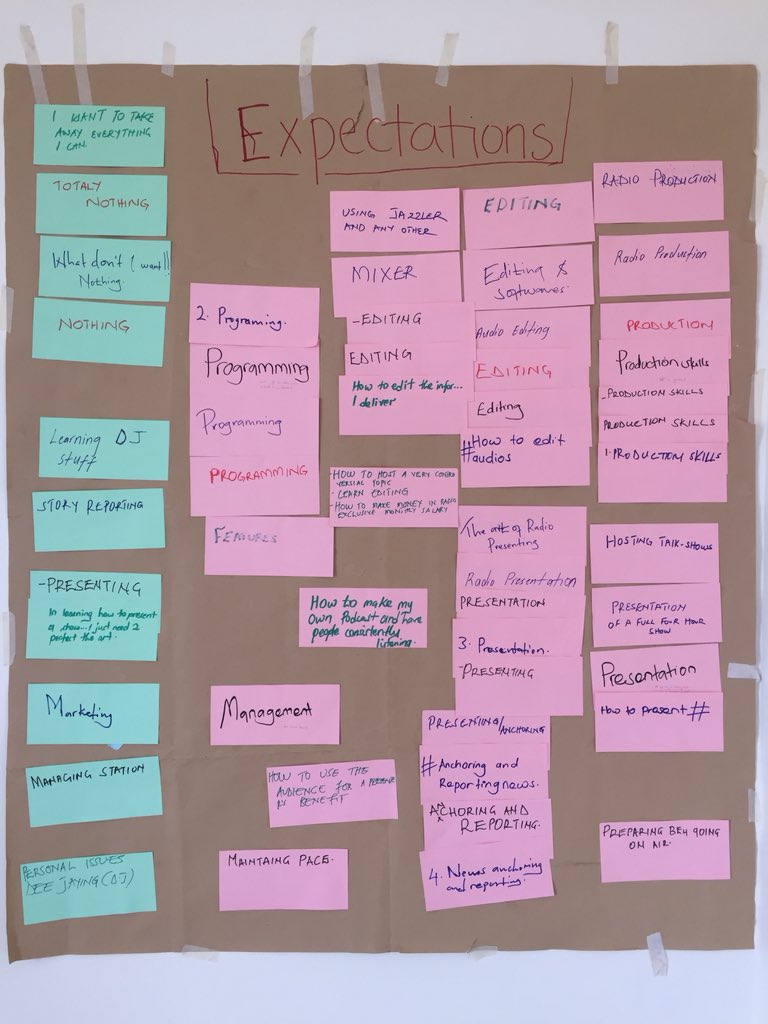 Expectations
I WANT TO TAKE
AWAY EVERYTHING
I CAN.
TOTALY
NOTHING
What don't I want!!
Nothing.
NOTHING
Learning DJ
stuff
STORY REPORTING
-PRESENTING
In learning how to present
a show...I just need 2
perfect the art.
Marketing
MANAGING STATION
PERSONAL ISSUES
DEE JAYING (DJ)
2. Programing.
Programming
Programming
PROGRAMMING
FEATURES
Management
HOW TO USE THE
AUDIENCE FOR A PERSON
BENEFIT
MAINTAING PACE.
USING JAZZLER
AND ANY OTHER
MIXER
-EDITING
EDITING
How to edit the infor...
I deliver
-HOW TO HOST A VERY CONTRO
VERSIAL TOPIC
- LEARN EDITING
-HOW TO MAKE MONEY IN RADIO
EXCLUSIVE MONTHLY SALARY
How to make my
own Podcast and have
people consistently
listening.
EDITING
Editing &
softwares.
Audio Editing
EDITING
Editing
#How to edit
audios
The art of Radio
Presenting
Radio Presentation
PRESENTATION
3. Presentation.
-PRESENTING
PRESENTING/ANCHORING
#Anchoring and
Reporting news.
ANCHORING AND
REPORTING.
4. News anchoring
and reporting.
RADIO PRODUCTION
Radio Production
PRODUCTION
Production skills
-PRODUCTION SKILLS
PRODUCTION SKILLS
1. PRODUCTION SKILLS
HOSTING TALK-SHOWS
PRESENTATION
OF A FULL FOUR HOUR
SHOW
Presentation
How to present #
PREPARING BE4 GOING
ON AIR.